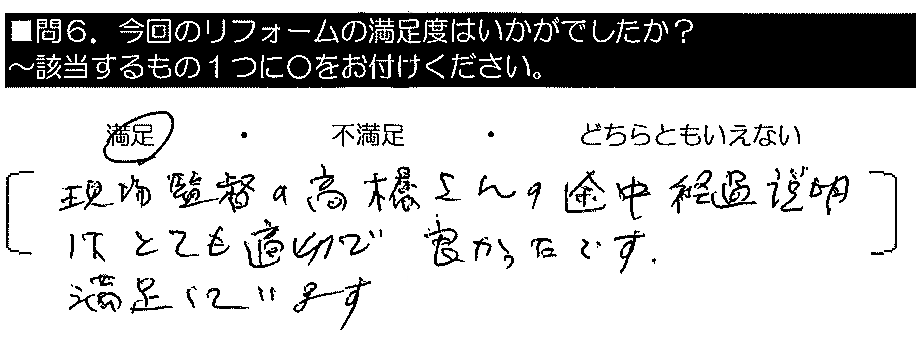 ■問6．今回のリフォームの満足度はいかがでしたか？
～該当するもの1つに○をお付けください。
満足 ・ 不満足 ・ どちらともいえない
現場監督の高橋さんの途中経過説明
はとても適切で良かったです。
満足しています